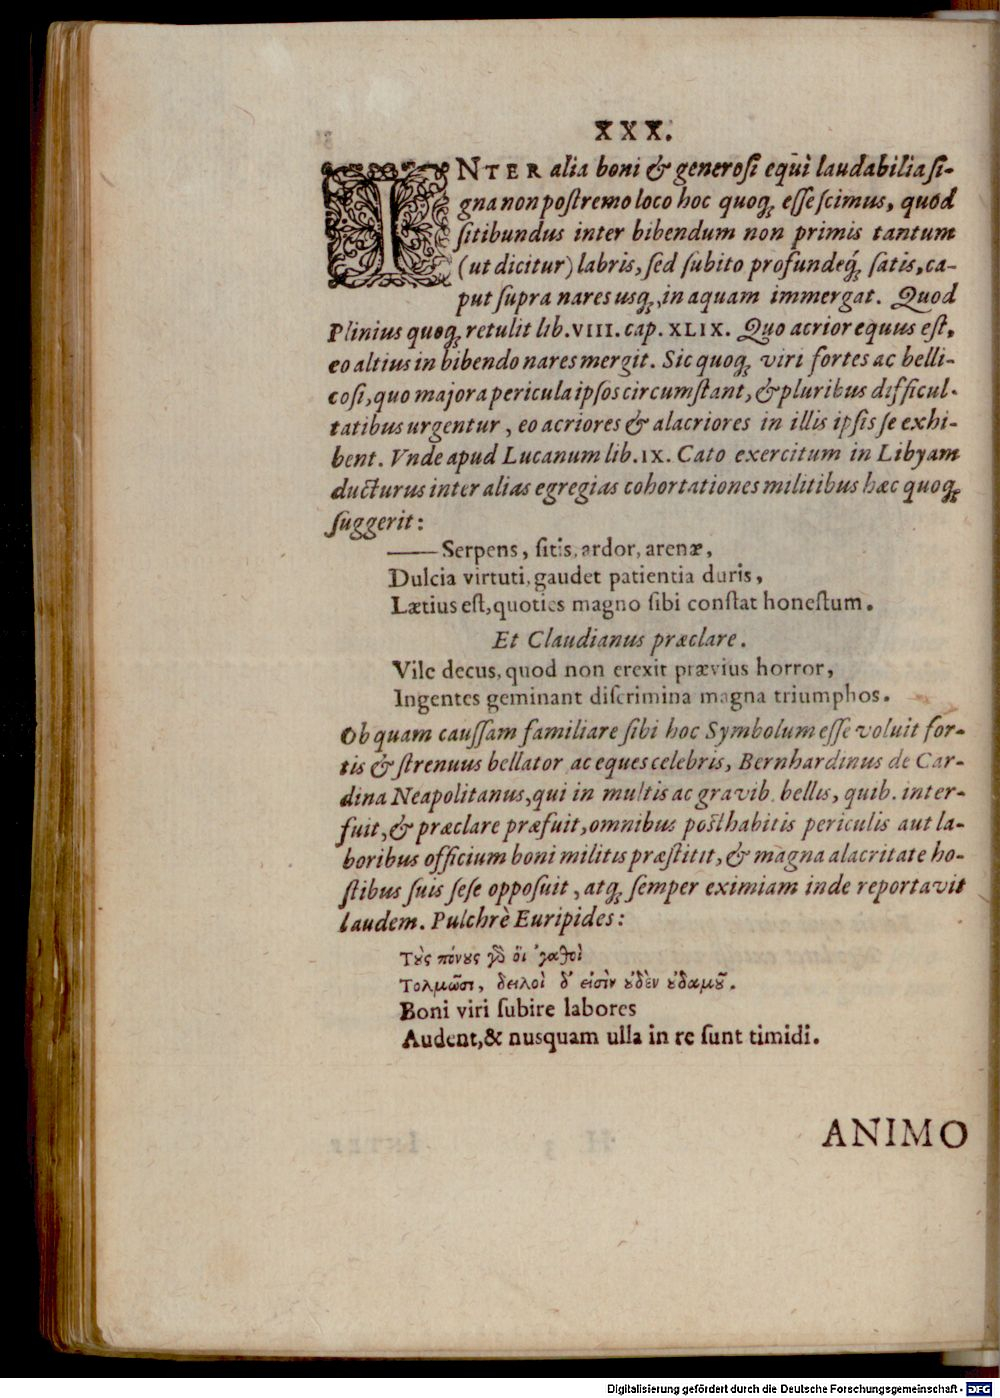 XXX.
INTER alia boni & generoſi equi laudabilia ſi-
gna non poſtremo loco hoc quoq; eſſe ſcimus, quod
ſitibundus inter bibendum non primis tantum
(ut dicitur) labris, ſed ſubito profundeq́; ſatis, ca-
put ſupra nares usq;, in aquam immergat. Quod
Plinius quoq; retulit lib. VIII. cap. XLIX. Quo acrior equus eſt,
eo altius in bibendo nares mergit. Sic quoq; viri fortes ac belli-
coſi, quo majora pericula ipſos circumſtant, & pluribus difficul-
tatibus urgentur, eo acriores & alacriores in illis ipſis ſe exhi-
bent. Vnde apud Lucanum lib. IX. Cato exercitum in Libyam
ducturus inter alias egregias cohortationes militibus hæc quoq;
ſuggerit:
—— Serpens, ſitis, ardor, arenæ,
Dulcia virtuti, gaudet patientia duris,
Lætius eſt, quoties magno ſibi conſtat honeſtum.
Et Claudianus præclare.
Vile decus, quod non erexit prævius horror,
Ingentes geminant diſcrimina magna triumphos.
Ob quam cauſſam familiare ſibi hoc Symbolum eſſe voluit for-
tis & ſtrenuus bellator ac eques celebris, Bernhardinus de Car-
dina Neapolitanus, qui in multis ac gravib. bellis, quib. inter-
fuit, & præclare præfuit, omnibus poſthabitis periculis aut la-
boribus officium boni militis præſtitit, & magna alacritate ho-
ſtibus ſuis ſeſe oppoſuit, atq; ſemper eximiam inde reportavit
laudem. Pulchrè Euripides:
Τοὺς πόνους γὸ οἵ ’γαθοὶ
Τολμῶσι, δειλοὶ δ’ εἰσὶν οὐδὲν οὐδαμοῦ.
Boni viri ſubire labores
Audent, & nusquam ulla in re ſunt timidi.
ANIMO
Digitalisierung gefördert durch die Deutsche Forschungsgemeinschaft - DFG